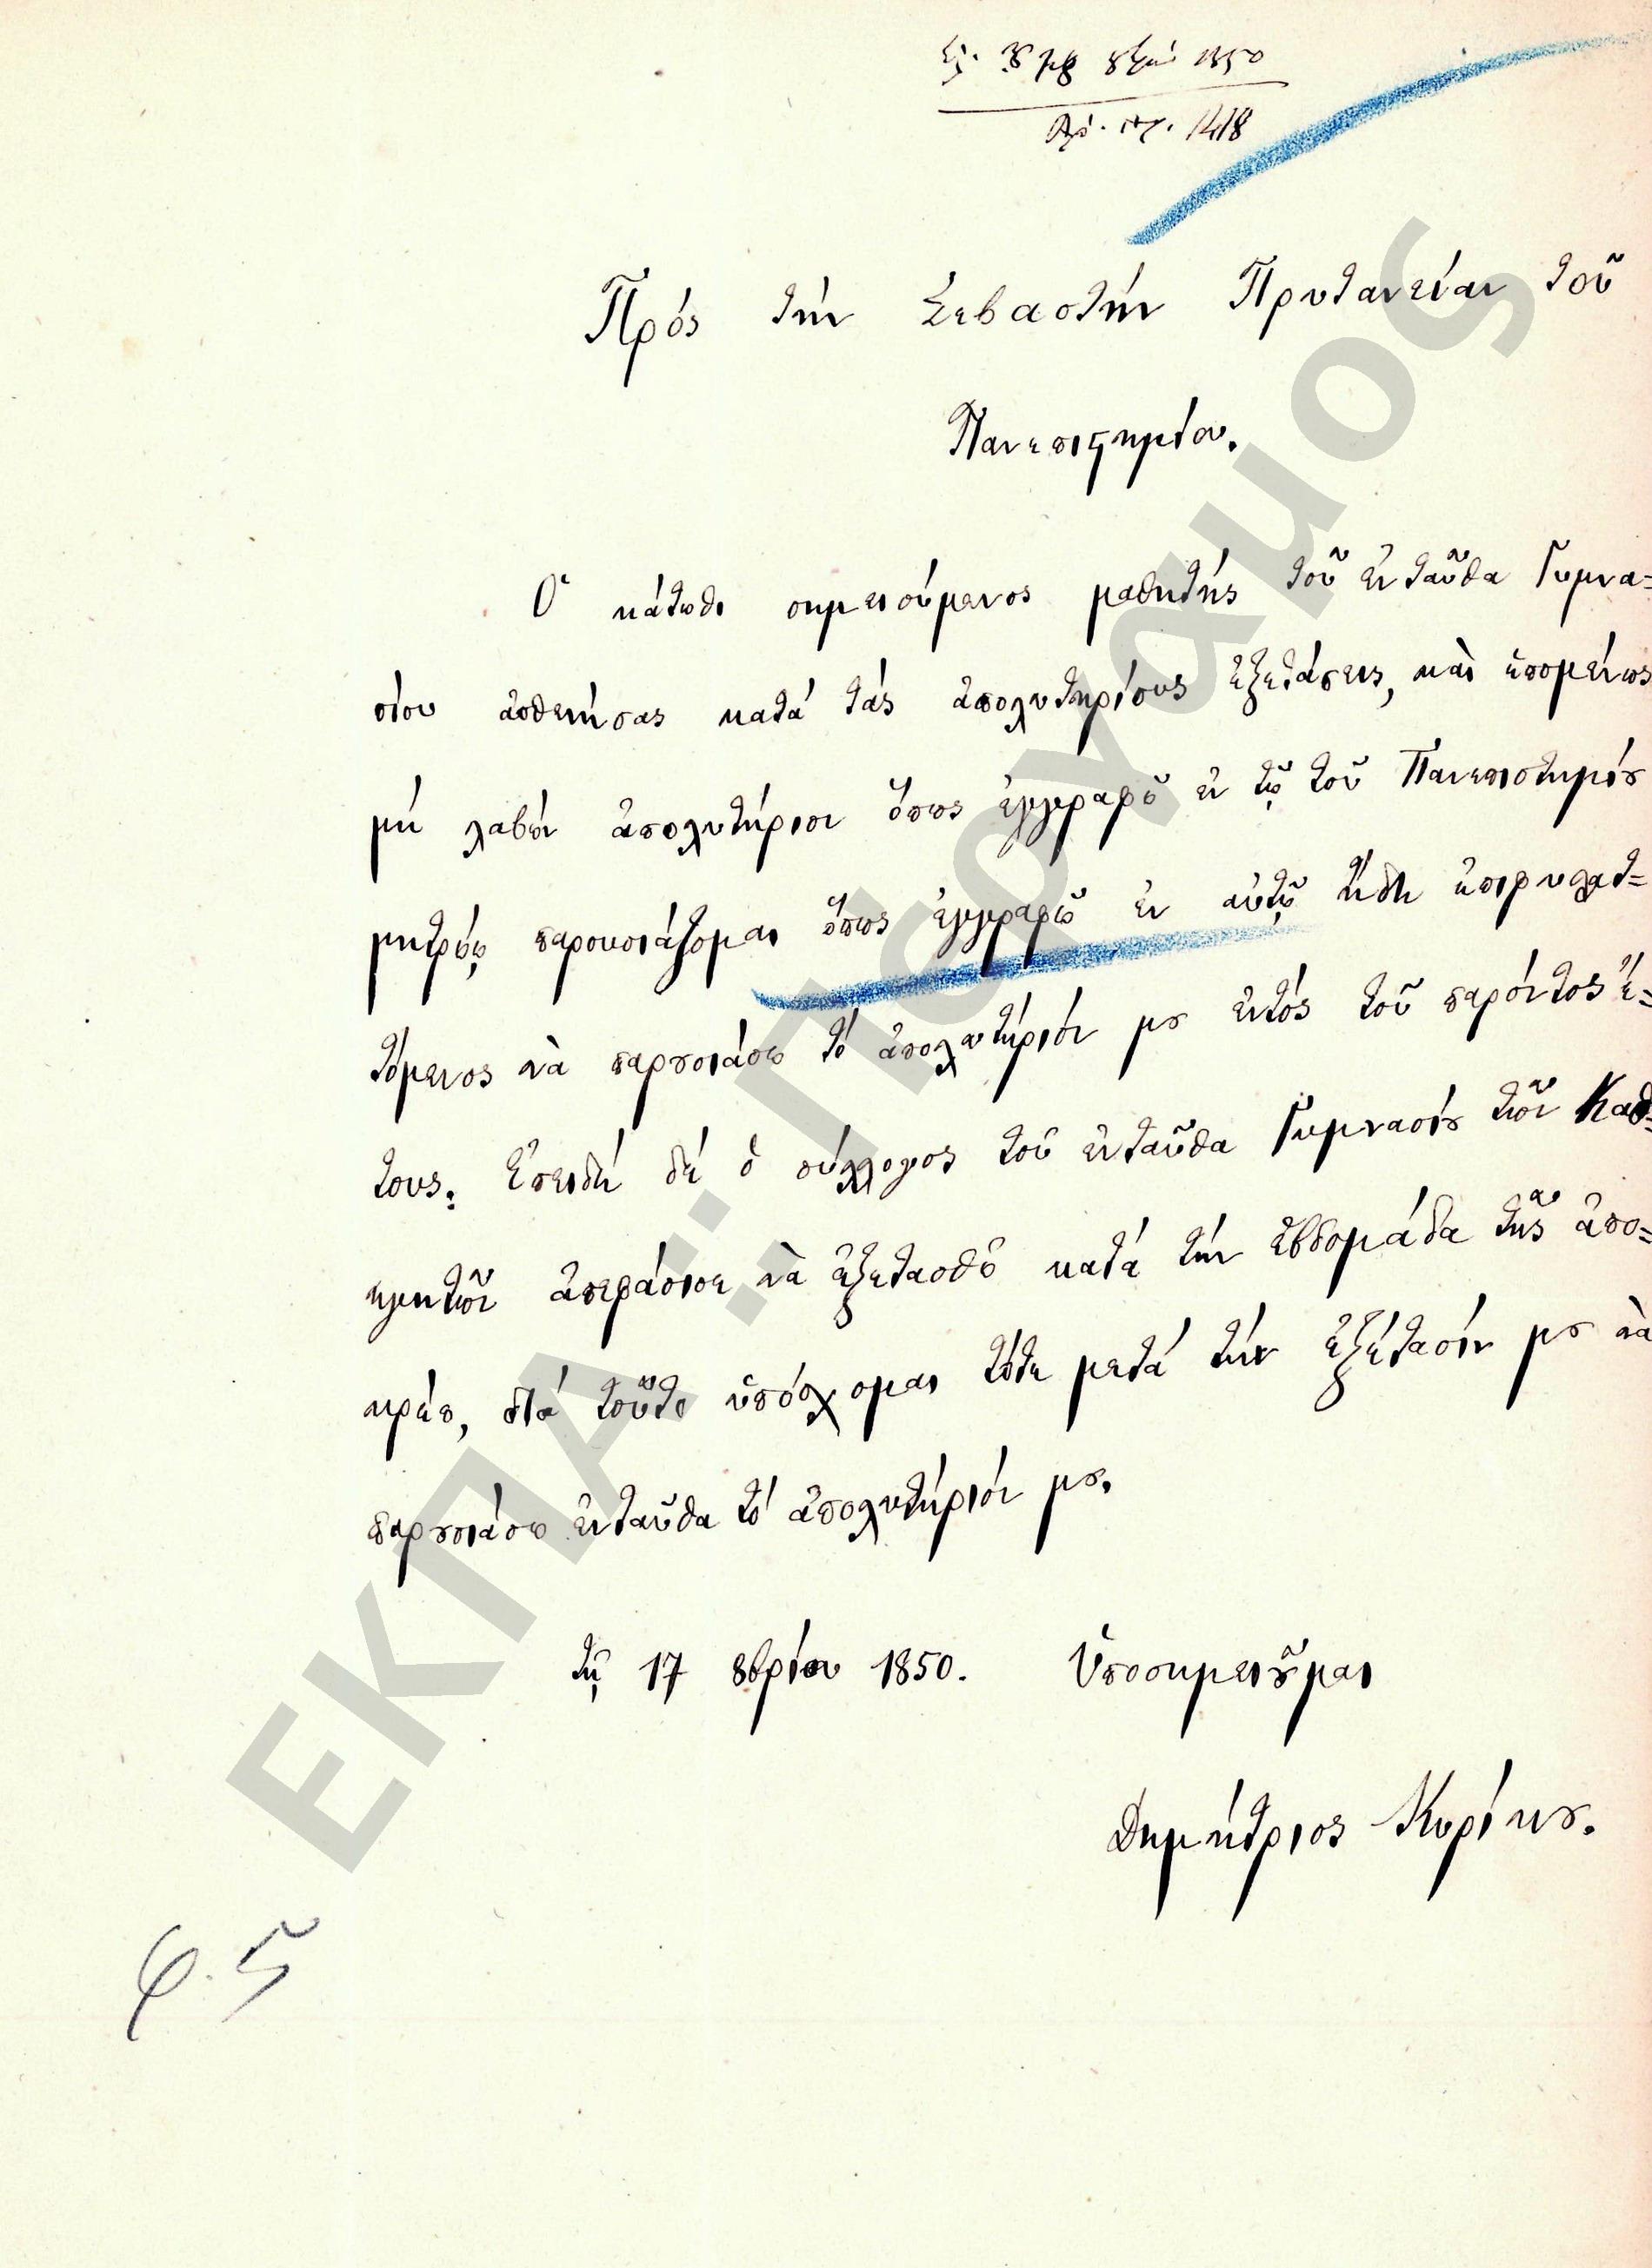 1850
Ἀρ. πρ. 1418
Πρός τήν Σεβαστήν Πρυτανείαν τοῦ
Πανεπιϛημίου.
Ὁ κάτωθι σημειούμενος μαθητής τοῦ ἐνταῦθα Γυμνα=
σίου ἀσθενήσας κατά τάς ἀπολυτηρίους ἐξετάσεις, καὶ ἑπομένως
μή λαβών ἀπολυτήριον ὅπως ἐγγραφῶ ἐν τῷ τοῦ Πανεπιστημίȣ
μητρώῳ παρουσιάζομαι ὅπως ἐγγραφῶ ἐν αὐτῷ ἤδη ἐπιφυλατ=
τόμενος νὰ παρȣσιάσω τό ἀπολυτήριόν μȣ ἐντός τοῦ παρόντος ἔ=
τους. Ἐπειδή δέ ὁ σύλλογος τοῦ ἐνταῦθα Γυμνασίȣ τῶν Καθ=
ηγητῶν ἀπεφάσισε νὰ ἐξετασθῶ κατά τήν ἑβδομάδα τῆς ἀπο=
κρέω, διά τοῦτο ὑπόσχομαι τότε μετά τήν ἐξέτασίν μȣ νὰ
παρȣσιάσω ἐνταῦθα τό ἀπολυτήριόν μȣ.
τῇ 17 8βρίου 1850. Ὑποσημειȣ͂μαι
Δημήτριος Κυρίκȣ.
φ. ς
ΕΚΠΑ: Πέργαμος